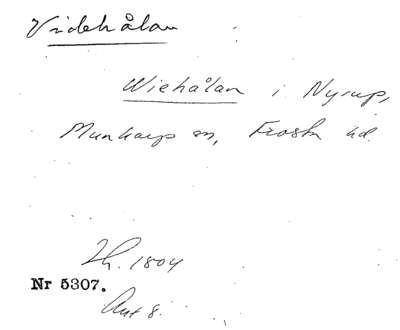 Videhålan
Wiehålan i Nyrup,
Munkarp sn, Frosta hd.
Lh. 1804
Nr 5307.
Ant 8.